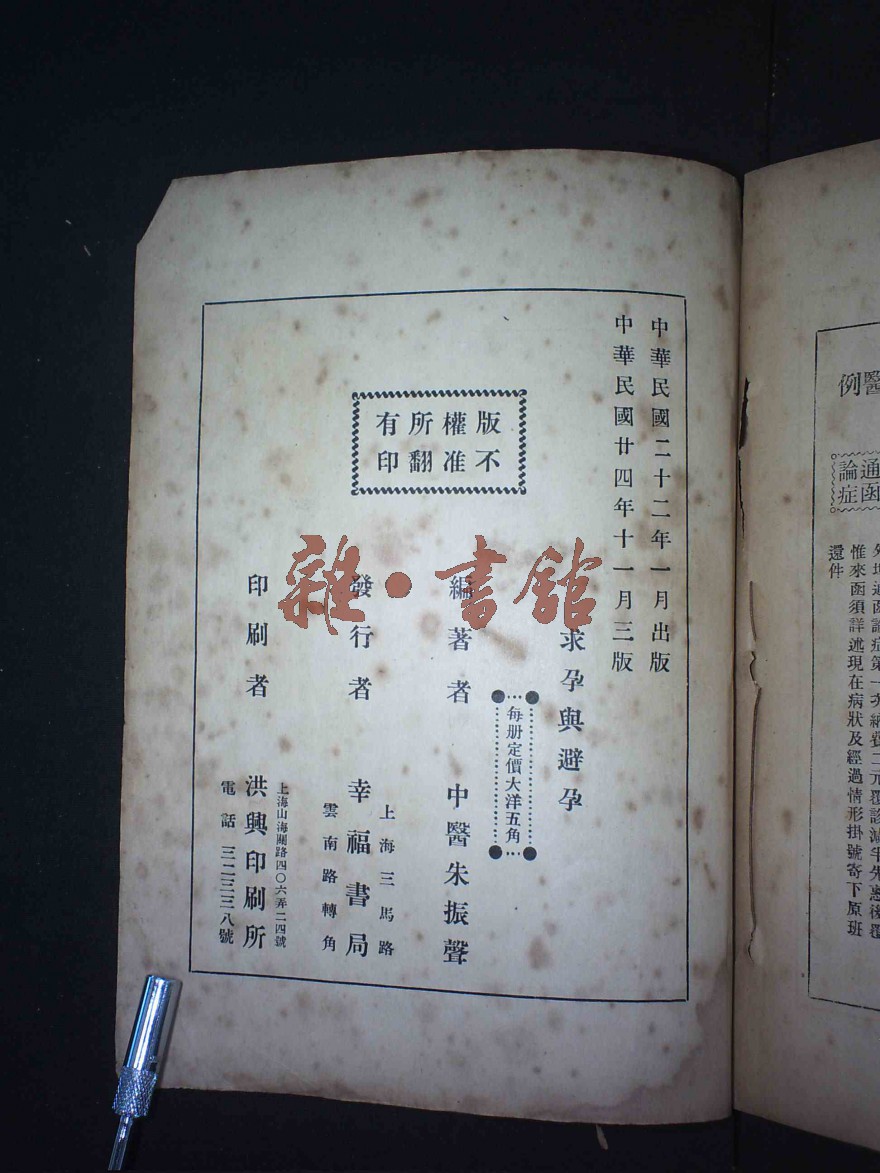 中華民國二十二年一月出版
中華民國廿四年十一月三版
求孕與避孕
每册定價大洋五角
版權所有
不准翻印
編著者 中醫朱振聲
發行者 幸福書局
上海三馬路
雲南路轉角
印刷者 洪興印刷所
上海山海關路四〇六弄二四號
電話 三二三三八號
雜·書館
醫例
通函論症
惟來函須詳述現在病狀及經過情形掛號寄下原班
還件